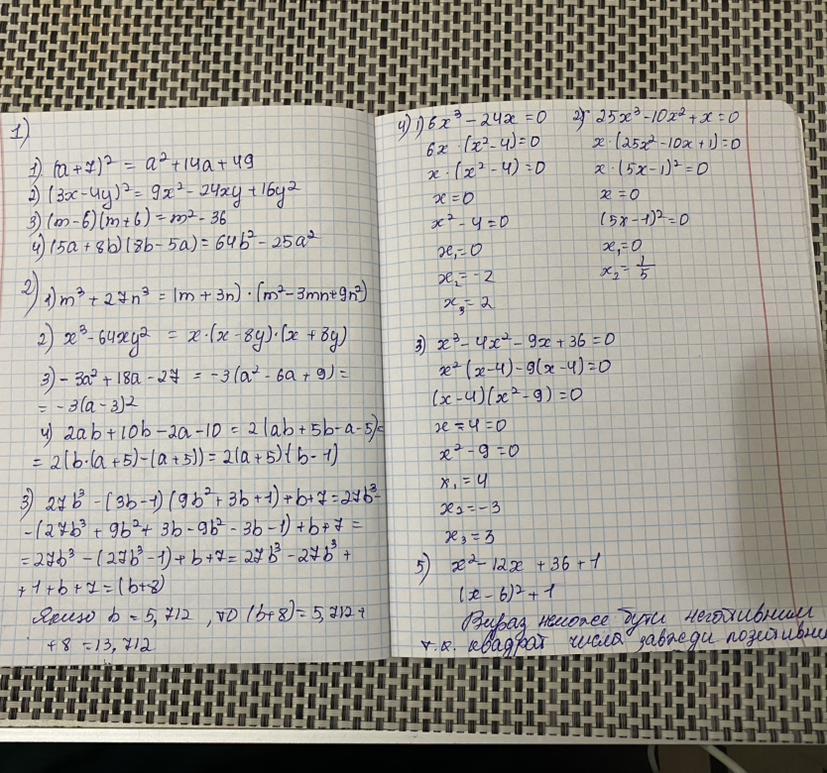 1)
1) (a+7)² = a²+14a+49
2) (3x-4y)² = 9x²-24xy+16y²
3) (m-6)(m+6) = m²-36
4) (5a+8b)(8b-5a) = 64b²-25a²
2) 1) m³+27n³ = (m+3n)·(m²-3mn+9n²)
2) x³-64xy² = x·(x-8y)·(x+8y)
3) -3a²+18a-27 = -3(a²-6a+9)=
= -3(a-3)²
4) 2ab+10b-2a-10 = 2(ab+5b-a-5)=
= 2(b·(a+5)-(a+5)) = 2(a+5)(b-1)
3) 27b³-(3b-1)(9b²+3b+1)+b+7=27b³-
-(27b³+9b²+3b-9b²-3b-1)+b+7=
=27b³-(27b³-1)+b+7=27b³-27b³+
+1+b+7=(b+8)
Якщо b = 5,712, то (b+8)=5,712+
+8 = 13,712
4) 1) 6x³-24x=0
6x·(x²-4)=0
x·(x²-4)=0
x=0
x²-4=0
x₁=0
x₂=-2
x₃=2
2) 25x³-10x²+x=0
x·(25x²-10x+1)=0
x·(5x-1)²=0
x=0
(5x-1)²=0
x₁=0
x₂=1/5
3) x³-4x²-9x+36=0
x²(x-4)-9(x-4)=0
(x-4)(x²-9)=0
x-4=0
x²-9=0
x₁=4
x₂=-3
x₃=3
5) x²-12x+36+1
(x-6)²+1
Вираз неможе бути негативним
т.к. квадрат числа завжди позитивни